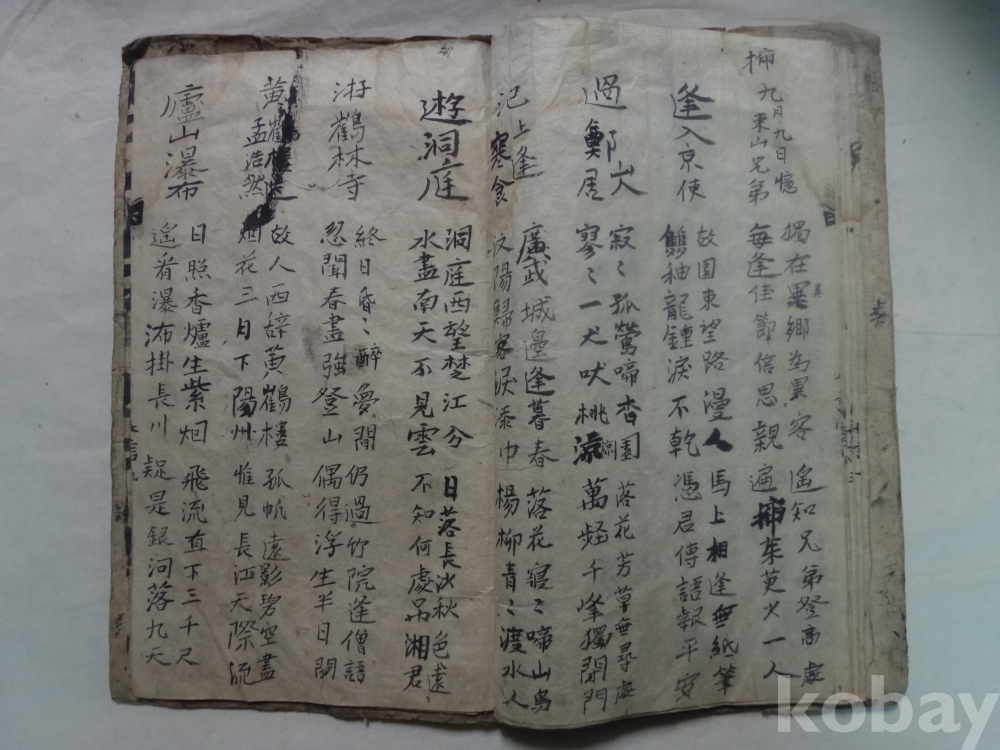 九月九日憶
東山兄弟
獨在異鄉為異客 遙知兄弟登高處
異
每逢佳節倍思親 遍揷茱萸少一人
逢入京使
故園東望路漫人 馬上相逢無紙筆
雙袖龍鍾淚不乾 憑君傳語報平安
過鄭
居
寂〻孤鶯啼杏園 落花芳草無尋處
寥〻一犬吠桃源 萬壑千峯獨閉門
氾上逢
寒食
廣武城邊逢暮春 落花寂〻啼山鳥
汶陽歸客淚添巾 楊柳青〻渡水人
遊洞庭
洞庭西望楚江分 日落長沙秋色遠
水盡南天不見雲 不知何處吊湘君
游鶴林寺
終日昏〻醉夢間 仍過竹院逢僧語
忽聞春盡強登山 偶得浮生半日閑
黃鶴樓送
孟浩然
故人西辞黃鶴樓 孤帆遠影碧空盡
烟花三日下陽州 惟見長江天際流
廬山瀑布
日照香爐生紫烟 飛流直下三千尺
遙看瀑沛掛長川 疑是銀河落九天
kobay